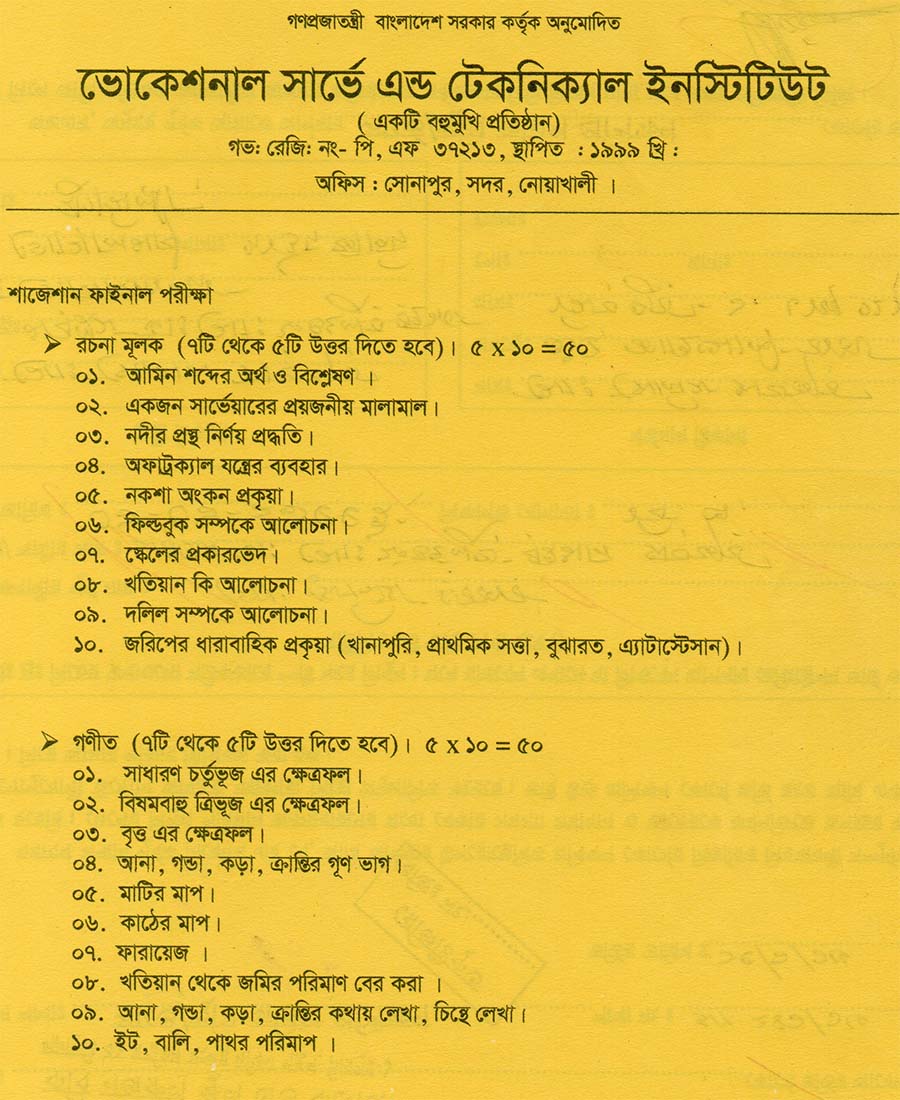 গণপ্রজাতন্ত্রী বাংলাদেশ সরকার কর্তৃক অনুমোদিত
ভোকেশনাল সার্ভে এন্ড টেকনিক্যাল ইনস্টিটিউট
( একটি বহুমুখি প্রতিষ্ঠান)
গভঃ রেজিঃ নং- পি, এফ ৩৭২১৩, স্থাপিত : ১৯৯৯ খ্রি :
অফিস : সোনাপুর, সদর, নোয়াখালী ।
শাজেশান ফাইনাল পরীক্ষা
➢ রচনা মূলক (৭টি থেকে ৫টি উত্তর দিতে হবে)। ৫ x ১০ = ৫০
০১. আমিন শব্দের অর্থ ও বিশ্লেষণ ।
০২. একজন সার্ভেয়ারের প্রয়জনীয় মালামাল।
০৩. নদীর প্রস্থ নির্ণয় প্রদ্ধতি।
০৪. অফাট্রক্যাল যন্ত্রের ব্যবহার।
০৫. নকশা অংকন প্রকৃয়া।
০৬. ফিল্ডবুক সম্পকে আলোচনা।
০৭. স্কেলের প্রকারভেদ।
০৮. খতিয়ান কি আলোচনা।
০৯. দলিল সম্পকে আলোচনা।
১০. জরিপের ধারাবাহিক প্রকৃয়া (খানাপুরি, প্রাথমিক সত্তা, বুঝারত, এ্যাটাস্টেসান)।
➢ গণীত (৭টি থেকে ৫টি উত্তর দিতে হবে)। ৫ x ১০ = ৫০
০১. সাধারণ চর্তুভূজ এর ক্ষেত্রফল।
০২. বিষমবাহু ত্রিভূজ এর ক্ষেত্রফল।
০৩. বৃত্ত এর ক্ষেত্রফল।
০৪. আনা, গন্ডা, কড়া, ক্রান্তির গূণ ভাগ।
০৫. মাটির মাপ।
০৬. কাঠের মাপ।
০৭. ফারায়েজ ।
০৮. খতিয়ান থেকে জমির পরিমাণ বের করা ।
০৯. আনা, গন্ডা, কড়া, ক্রান্তির কথায় লেখা, চিহ্নে লেখা।
১০. ইট, বালি, পাথর পরিমাপ ।